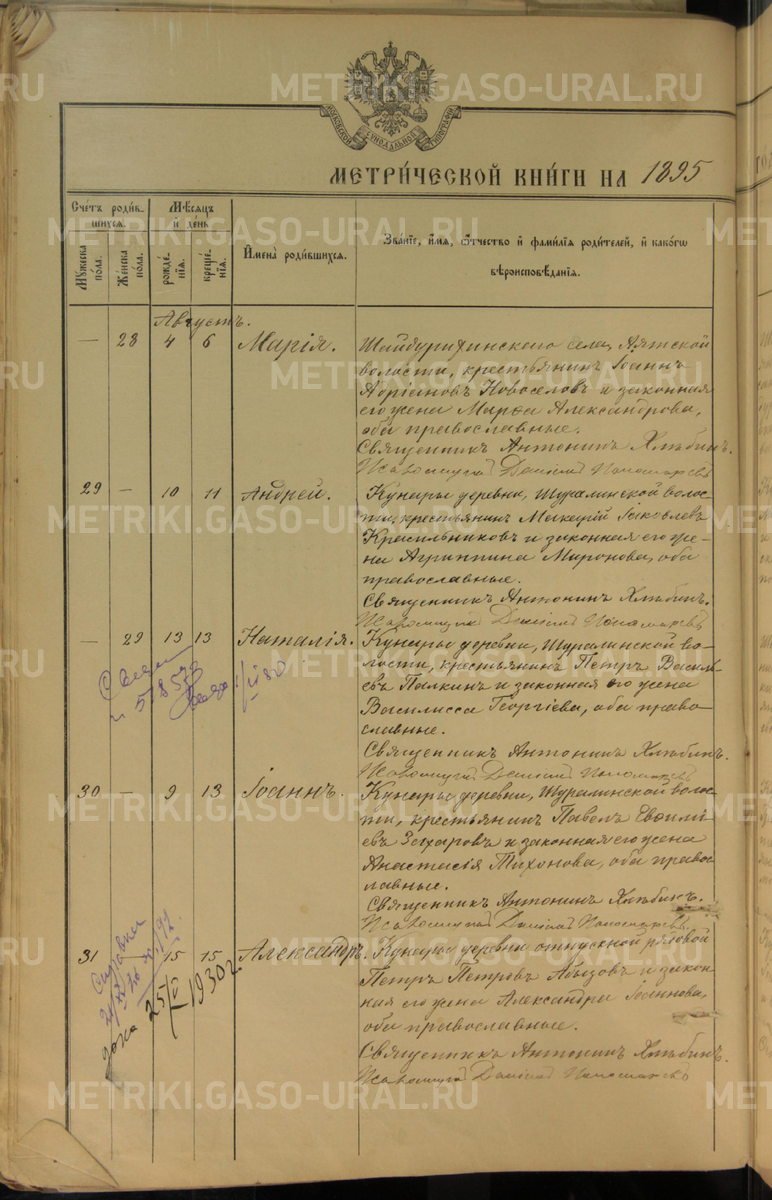 METRIKI.GASO-URAL.RU
МОСКОВСКОЙ СѴНОДАЛЬНОЙ ТИПОГРАФІИ
МЕТРИ́ЧЕСКОЙ КНИ́ГИ НА 1895
Сче́тъ роди́вшихсѧ.
Мѣ́сѧцъ и҆ де́нь
И҆мена̀ роди́вшихсѧ.
Зва́нїе, и҆́мѧ, ѻ҆́тчество и҆ фами́лїѧ роди́телей, и҆ како́гѡ вѣроисповѣ́данїѧ.
Мꙋ́жеска по́ла.
Же́нска по́ла.
рожде́нїѧ.
креще́нїѧ.
Августъ.
— 28 4 6 Марія. Шайдурихинскаго села, Аятской
волости, крестьянинъ Іоаннъ
Адріановъ Новоселовъ и законная
его жена Марѳа Александрова,
оба православные.
Священникъ Антонинъ Хлѣбинъ.
Псаломщикъ Даніилъ Пономаревъ
29 — 10 11 Андрей. Кунары деревни, Шуралинской волос-
ти, крестьянинъ Яковлевъ
Красильниковъ и законная его же-
на Агриппина Миронова, оба
православные.
Священникъ Антонинъ Хлѣбинъ.
Псаломщикъ Даніилъ Пономаревъ
— 29 13 13 Наталія. Кунары деревни, Шуралинской во-
лости, крестьянинъ Петръ Василь-
евъ Палкинъ и законная его жена
Василисса Георгіева, оба право-
славные.
Священникъ Антонинъ Хлѣбинъ.
Псаломщикъ Даніилъ Пономаревъ
30 — 9 13 Іоаннъ. Кунары деревни, Шуралинской волос-
ти, крестьянинъ Павелъ
евъ Захаровъ и законная его жена
Анастасія Тихонова, оба правос-
лавные.
Священникъ Антонинъ Хлѣбинъ.
Псаломщикъ Даніилъ Пономаревъ
31 — 15 15 Александръ. Кунары деревни отпускной рядовой
Петръ Петровъ Абызовъ и закон-
ная его жена Александра Іоаннова,
оба православные.
Священникъ Антонинъ Хлѣбинъ.
Псаломщикъ Даніилъ Пономаревъ
Справка
1930г.